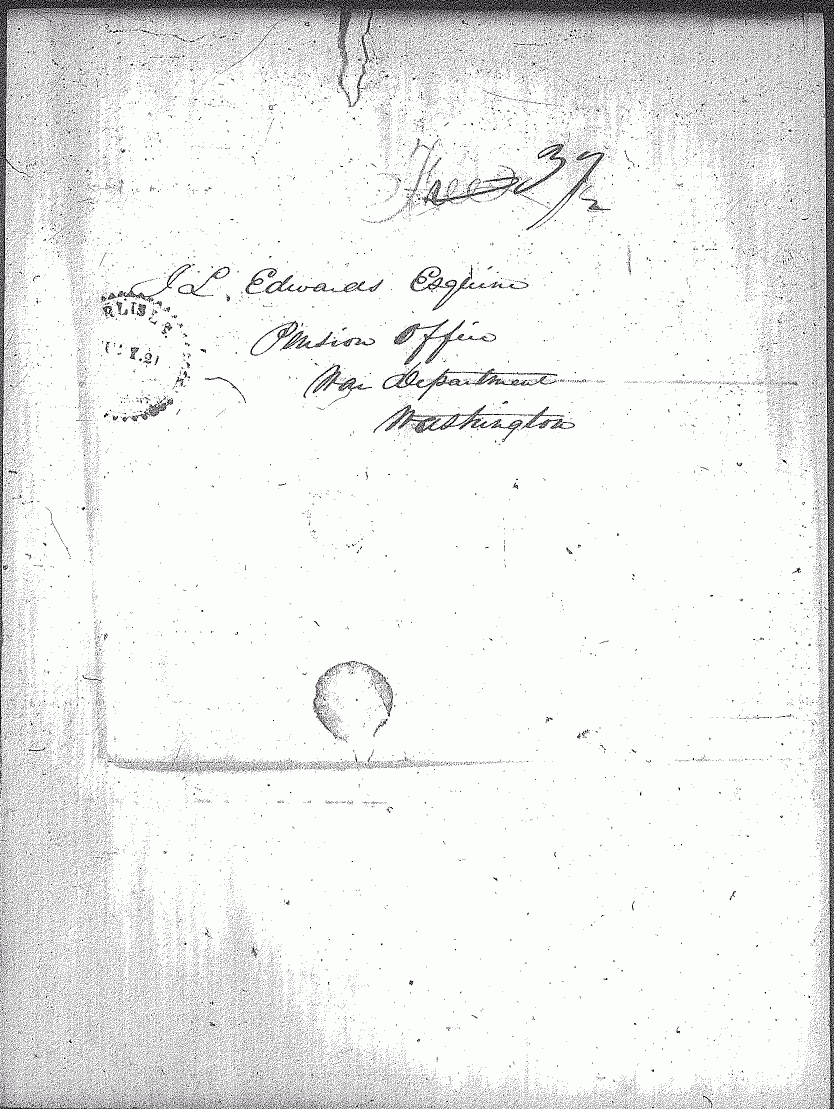 Free 37 1/2
J L. Edwards Esquire
Pension Office
War Department
Washington